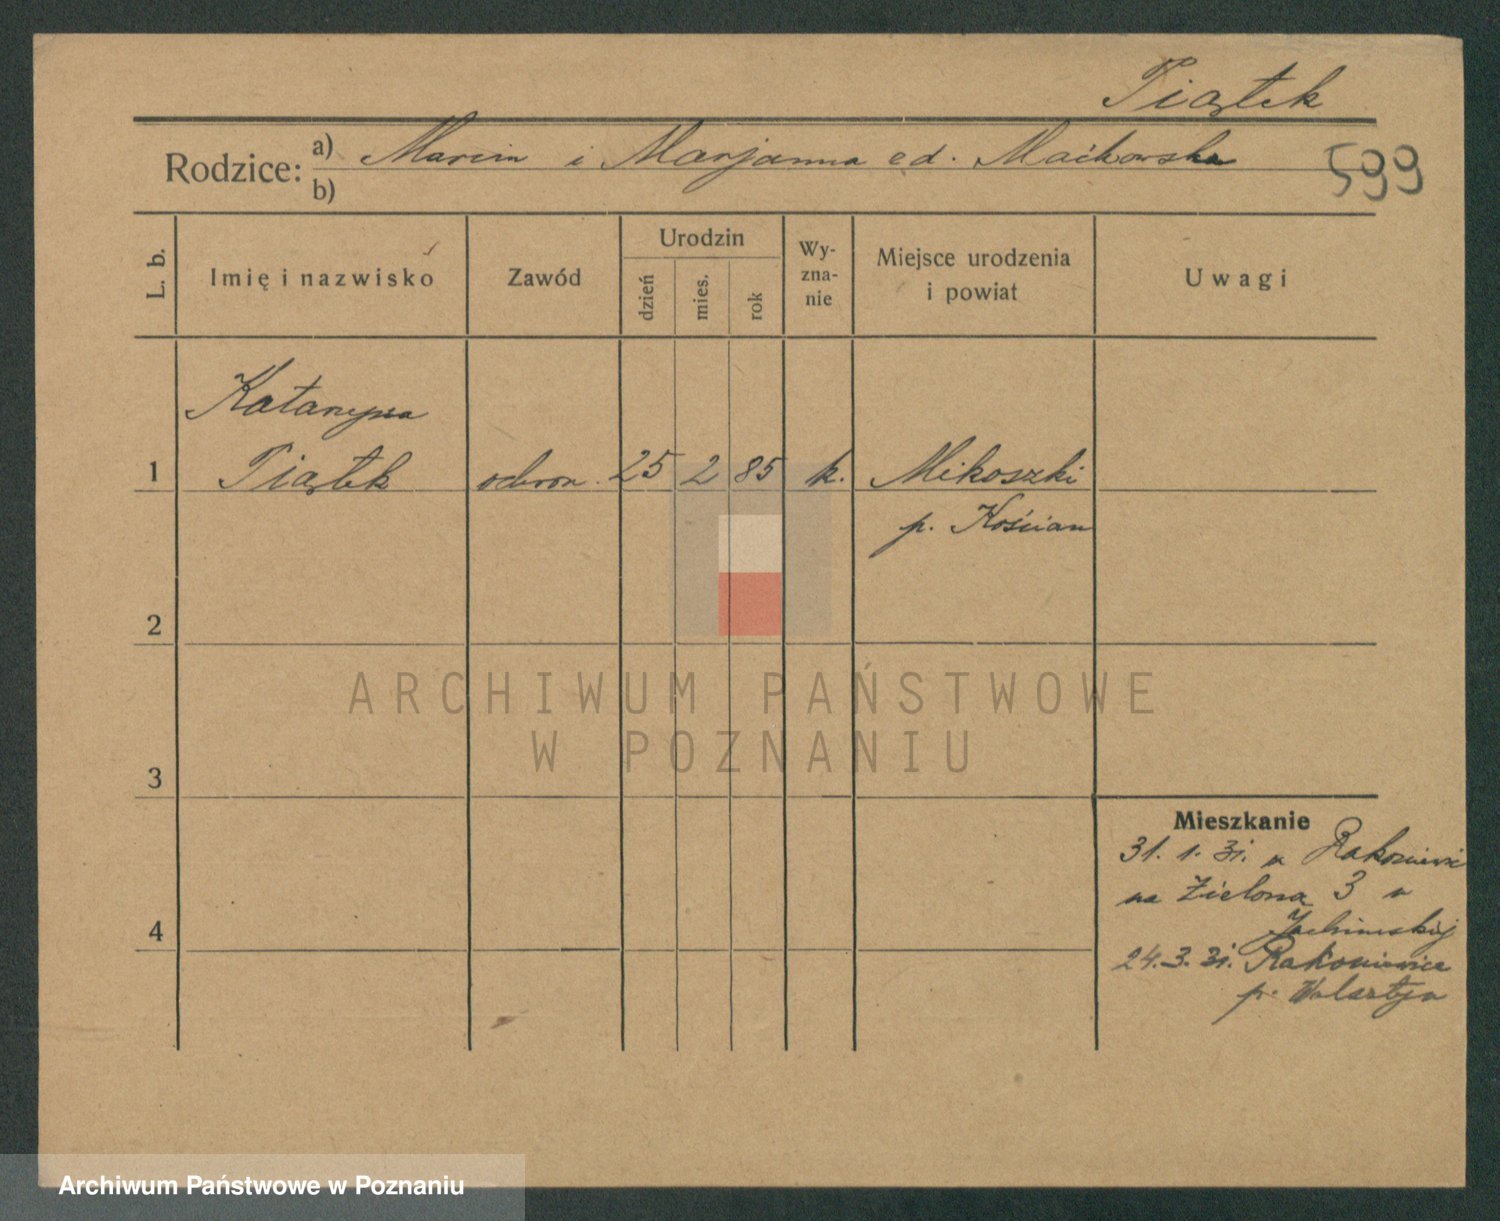 Piątek
Rodzice: a) Marcin i Marjanna cd. Maćkowska
b)
599
L. b.
Imię i nazwisko
Zawód
Urodzin
dzień
mies.
rok
Wy-
zna-
nie
Miejsce urodzenia
i powiat
Uwagi
Katarzyna
1 Piątek ochron. 25 2 85 k. Mikoszki
p. Kościan
2
ARCHIWUM PAŃSTWOWE
W POZNANIU
3
Mieszkanie
31. 1. 31. z Rakoniewic
na Zielona 3 u
4 Jachimskiej
24.3.31. Rakoniewice
p. Wolsztyn
Archiwum Państwowe w Poznaniu